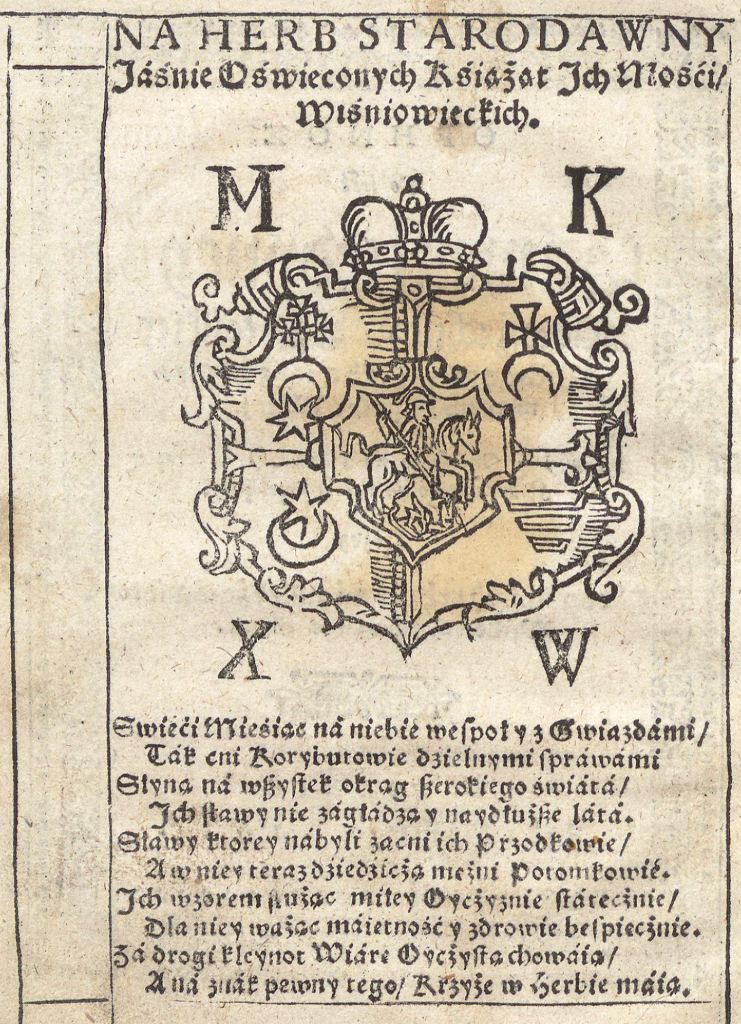 NA HERB STARODAWNY
Jáśnie Oświeconych Książąt Jch Mośći/
Wiśniowieckich.
M K
X W
Swiéći Mieśiąc ná niebie wespoł y z Gwiazdámi/
Ták cni Korybutowie dzielnymi spráwámi
Słyną ná wszystek okrąg szerokiego świátá/
Jch sławy nie zágłádzą y naydłuższe látá.
Sławy ktorey nábyli zacni ich Przodkowie/
A w niey teraz dźiedźiczą mężni Potomkowié.
Jch wzorem służąc miłey Oyczyznie státecżnie/
Dla niey ważąc máiętność y zdrowie bespiecżnie.
Zá drogi kleynot Wiárę Oyczystą chowáią/
A ná znák pewny tego/ Krzyże w Herbie máią.